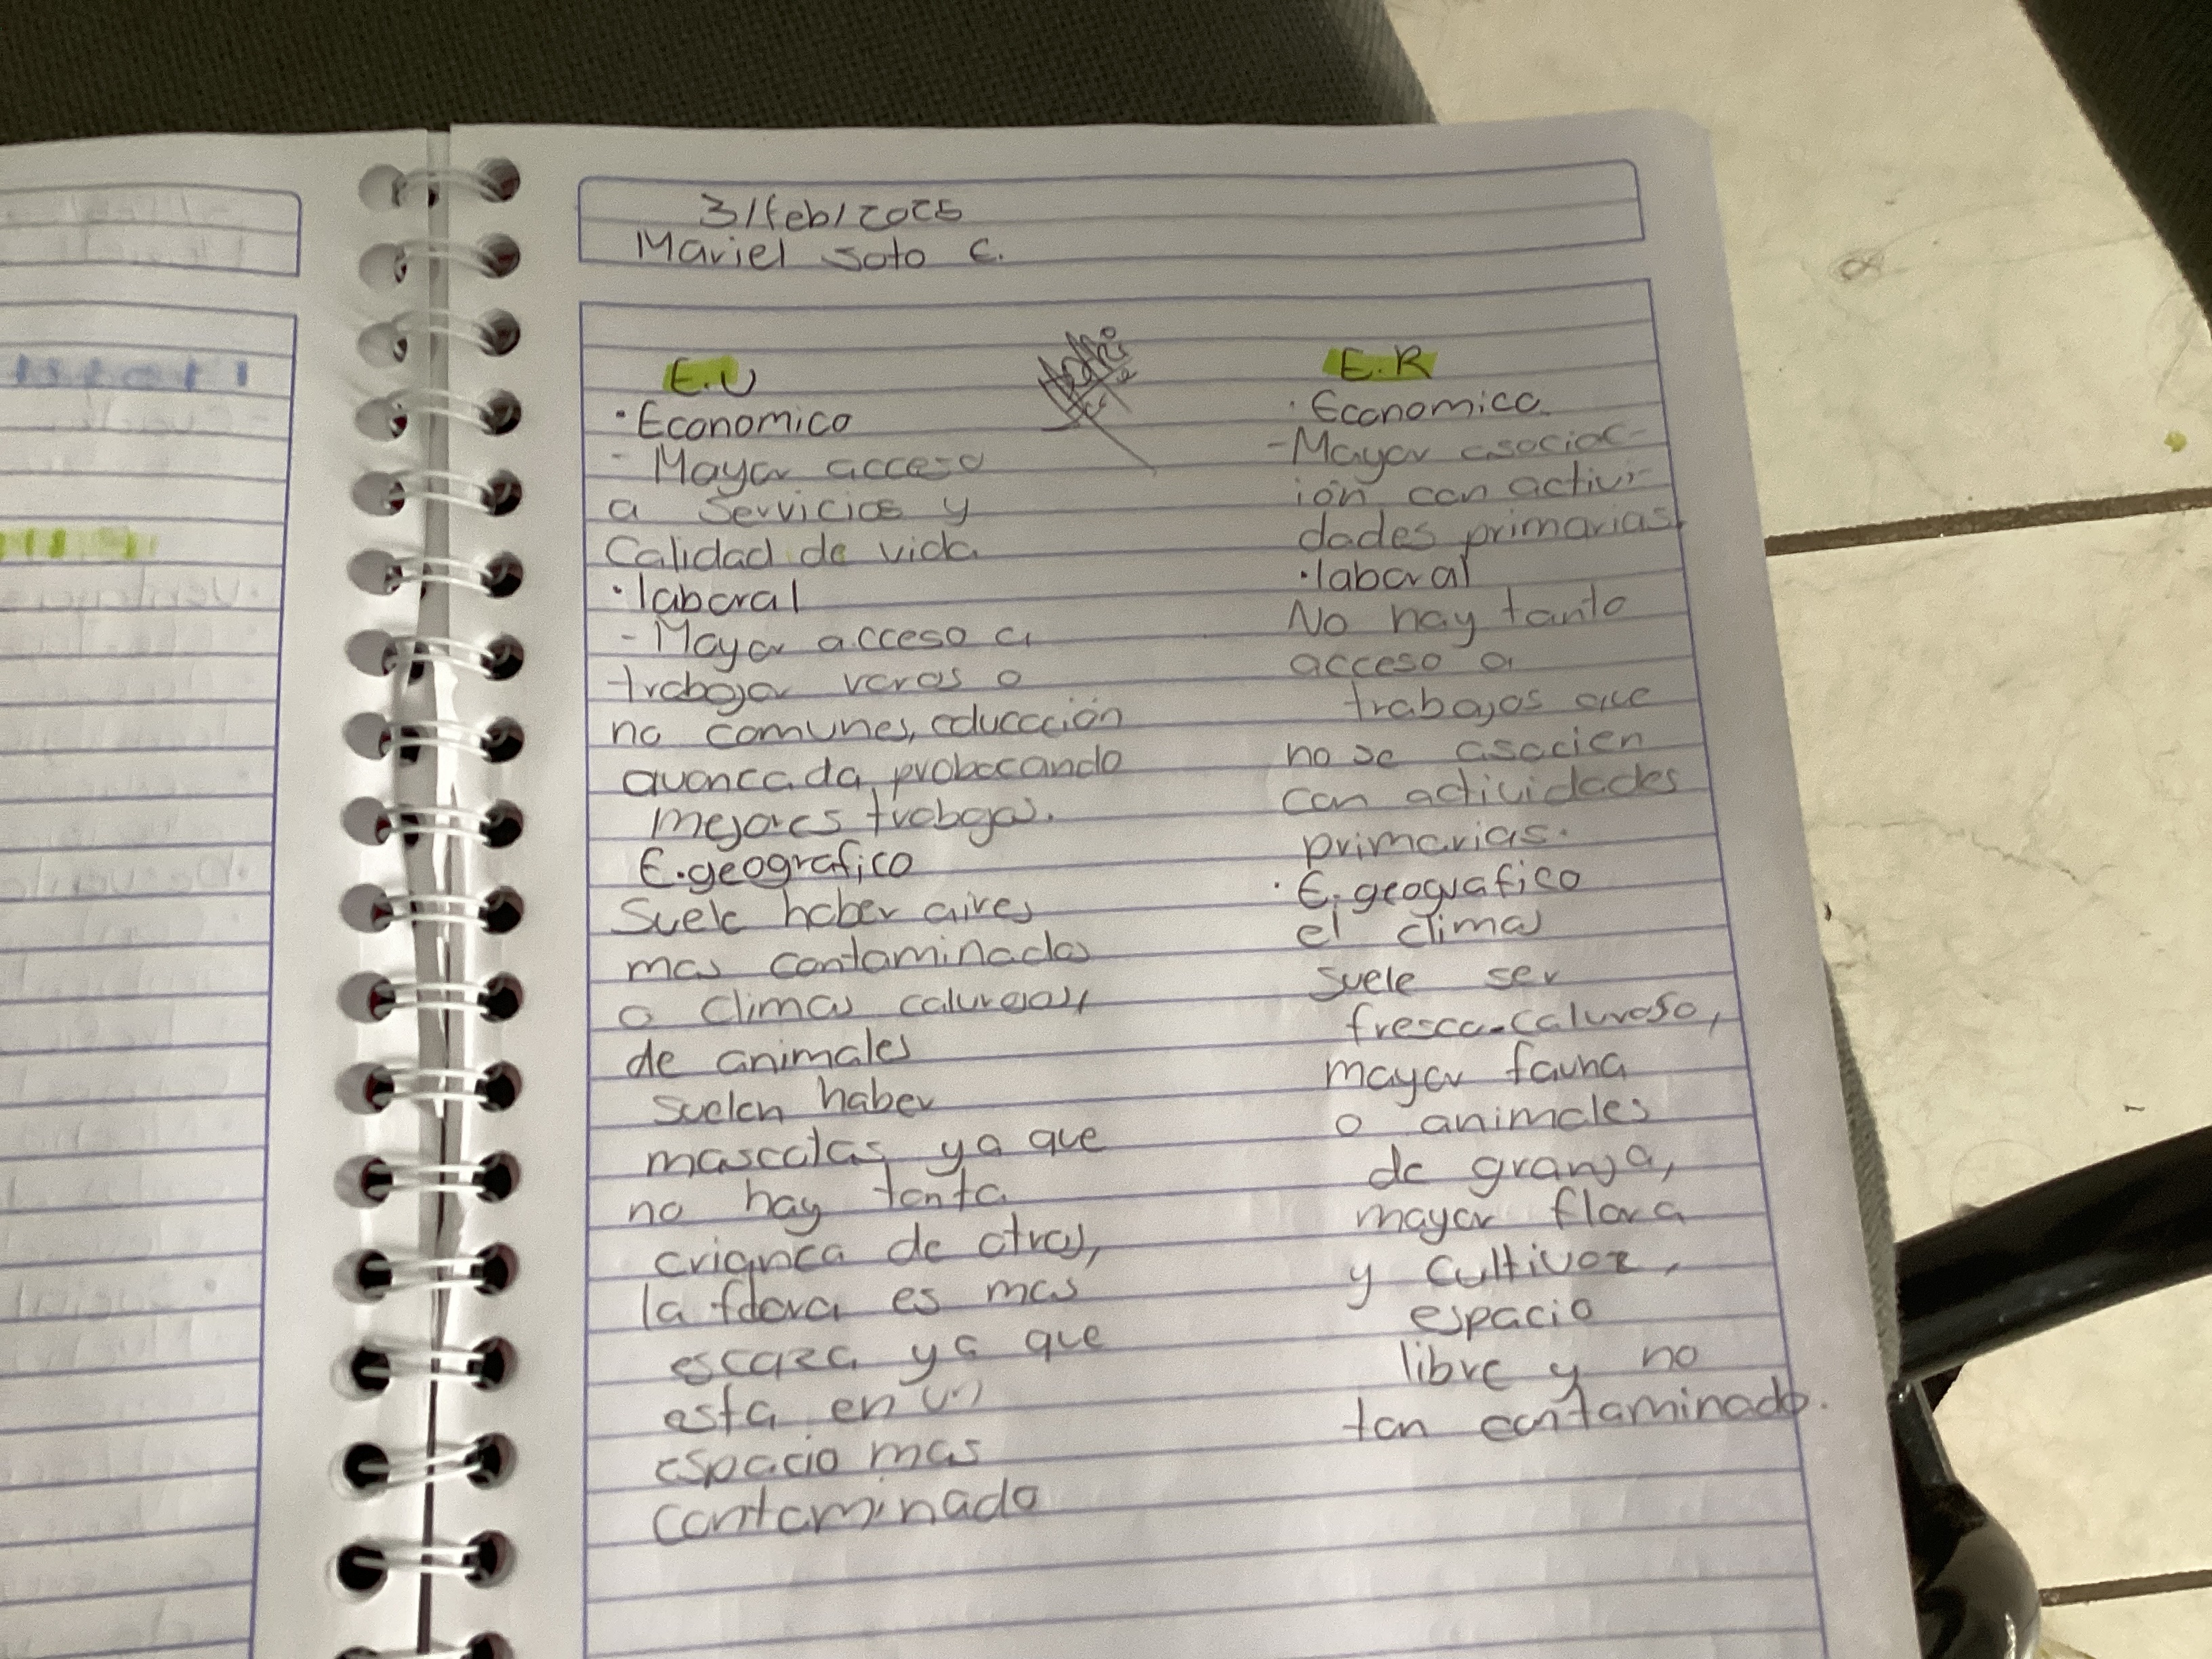 3/feb/2025
Mariel Soto E.
E.U
• Economico
- Mayor acceso
a servicios y
Calidad de vida
• laboral
- Mayor acceso a
trabajar raros o
no comunes, educación
avancada, probocando
mejores trabajos.
E. geografico
Suele haber aires
mas contaminados
o climas calurosos,
de animales
suelen haber
mascotas ya que
no hay tanta
crianca de otros,
la fdora es mas
escaza ya que
esta en un
espacio mas
contaminado
E.R
• Economico
- Mayor asociac-
ión con activi-
dades primarias
• laboral
No hay tanto
acceso a
trabajos que
no se asocien
con actividades
primarias.
• E. geografico
el climas
suele ser
fresco-caluroso,
mayor fauna
o animales
de granja,
mayor flora
y cultivoz,
espacio
libre y no
tan contaminado.